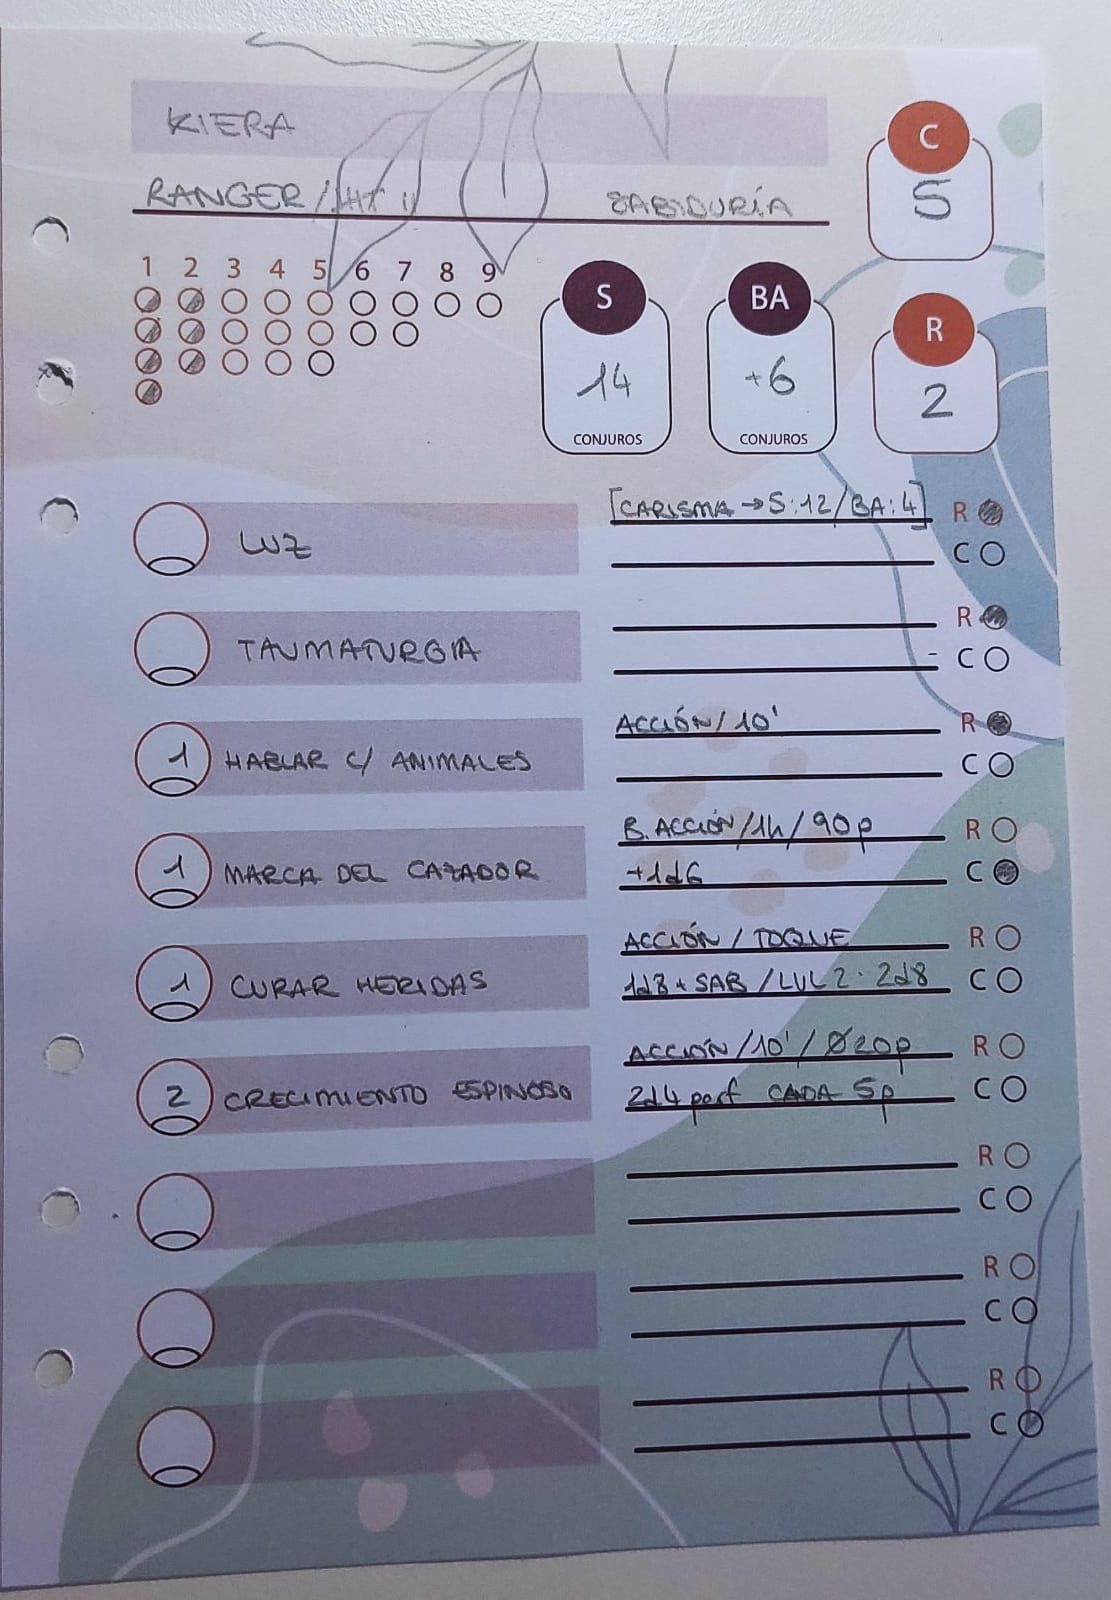 KIERA
C
5
RANGER / SABIDURÍA
1 2 3 4 5 6 7 8 9
S
14
CONJUROS
BA
+6
CONJUROS
R
2
LUZ
[CARISMA → S:12/BA:4] R
C
TAUMATURGIA
R
C
1 HABLAR C/ ANIMALES
ACCIÓN/10' R
C
1 MARCA DEL CAZADOR
B. ACCIÓN/1h/90p R
+1d6 C
1 CURAR HERIDAS
ACCIÓN / TOQUE R
1d8 + SAB / LVL 2· 2d8 C
2 CRECIMIENTO ESPINOSO
ACCIÓN/10'/Ø20p R
2d4 perf CADA 5p C
R
C
R
C
R
C